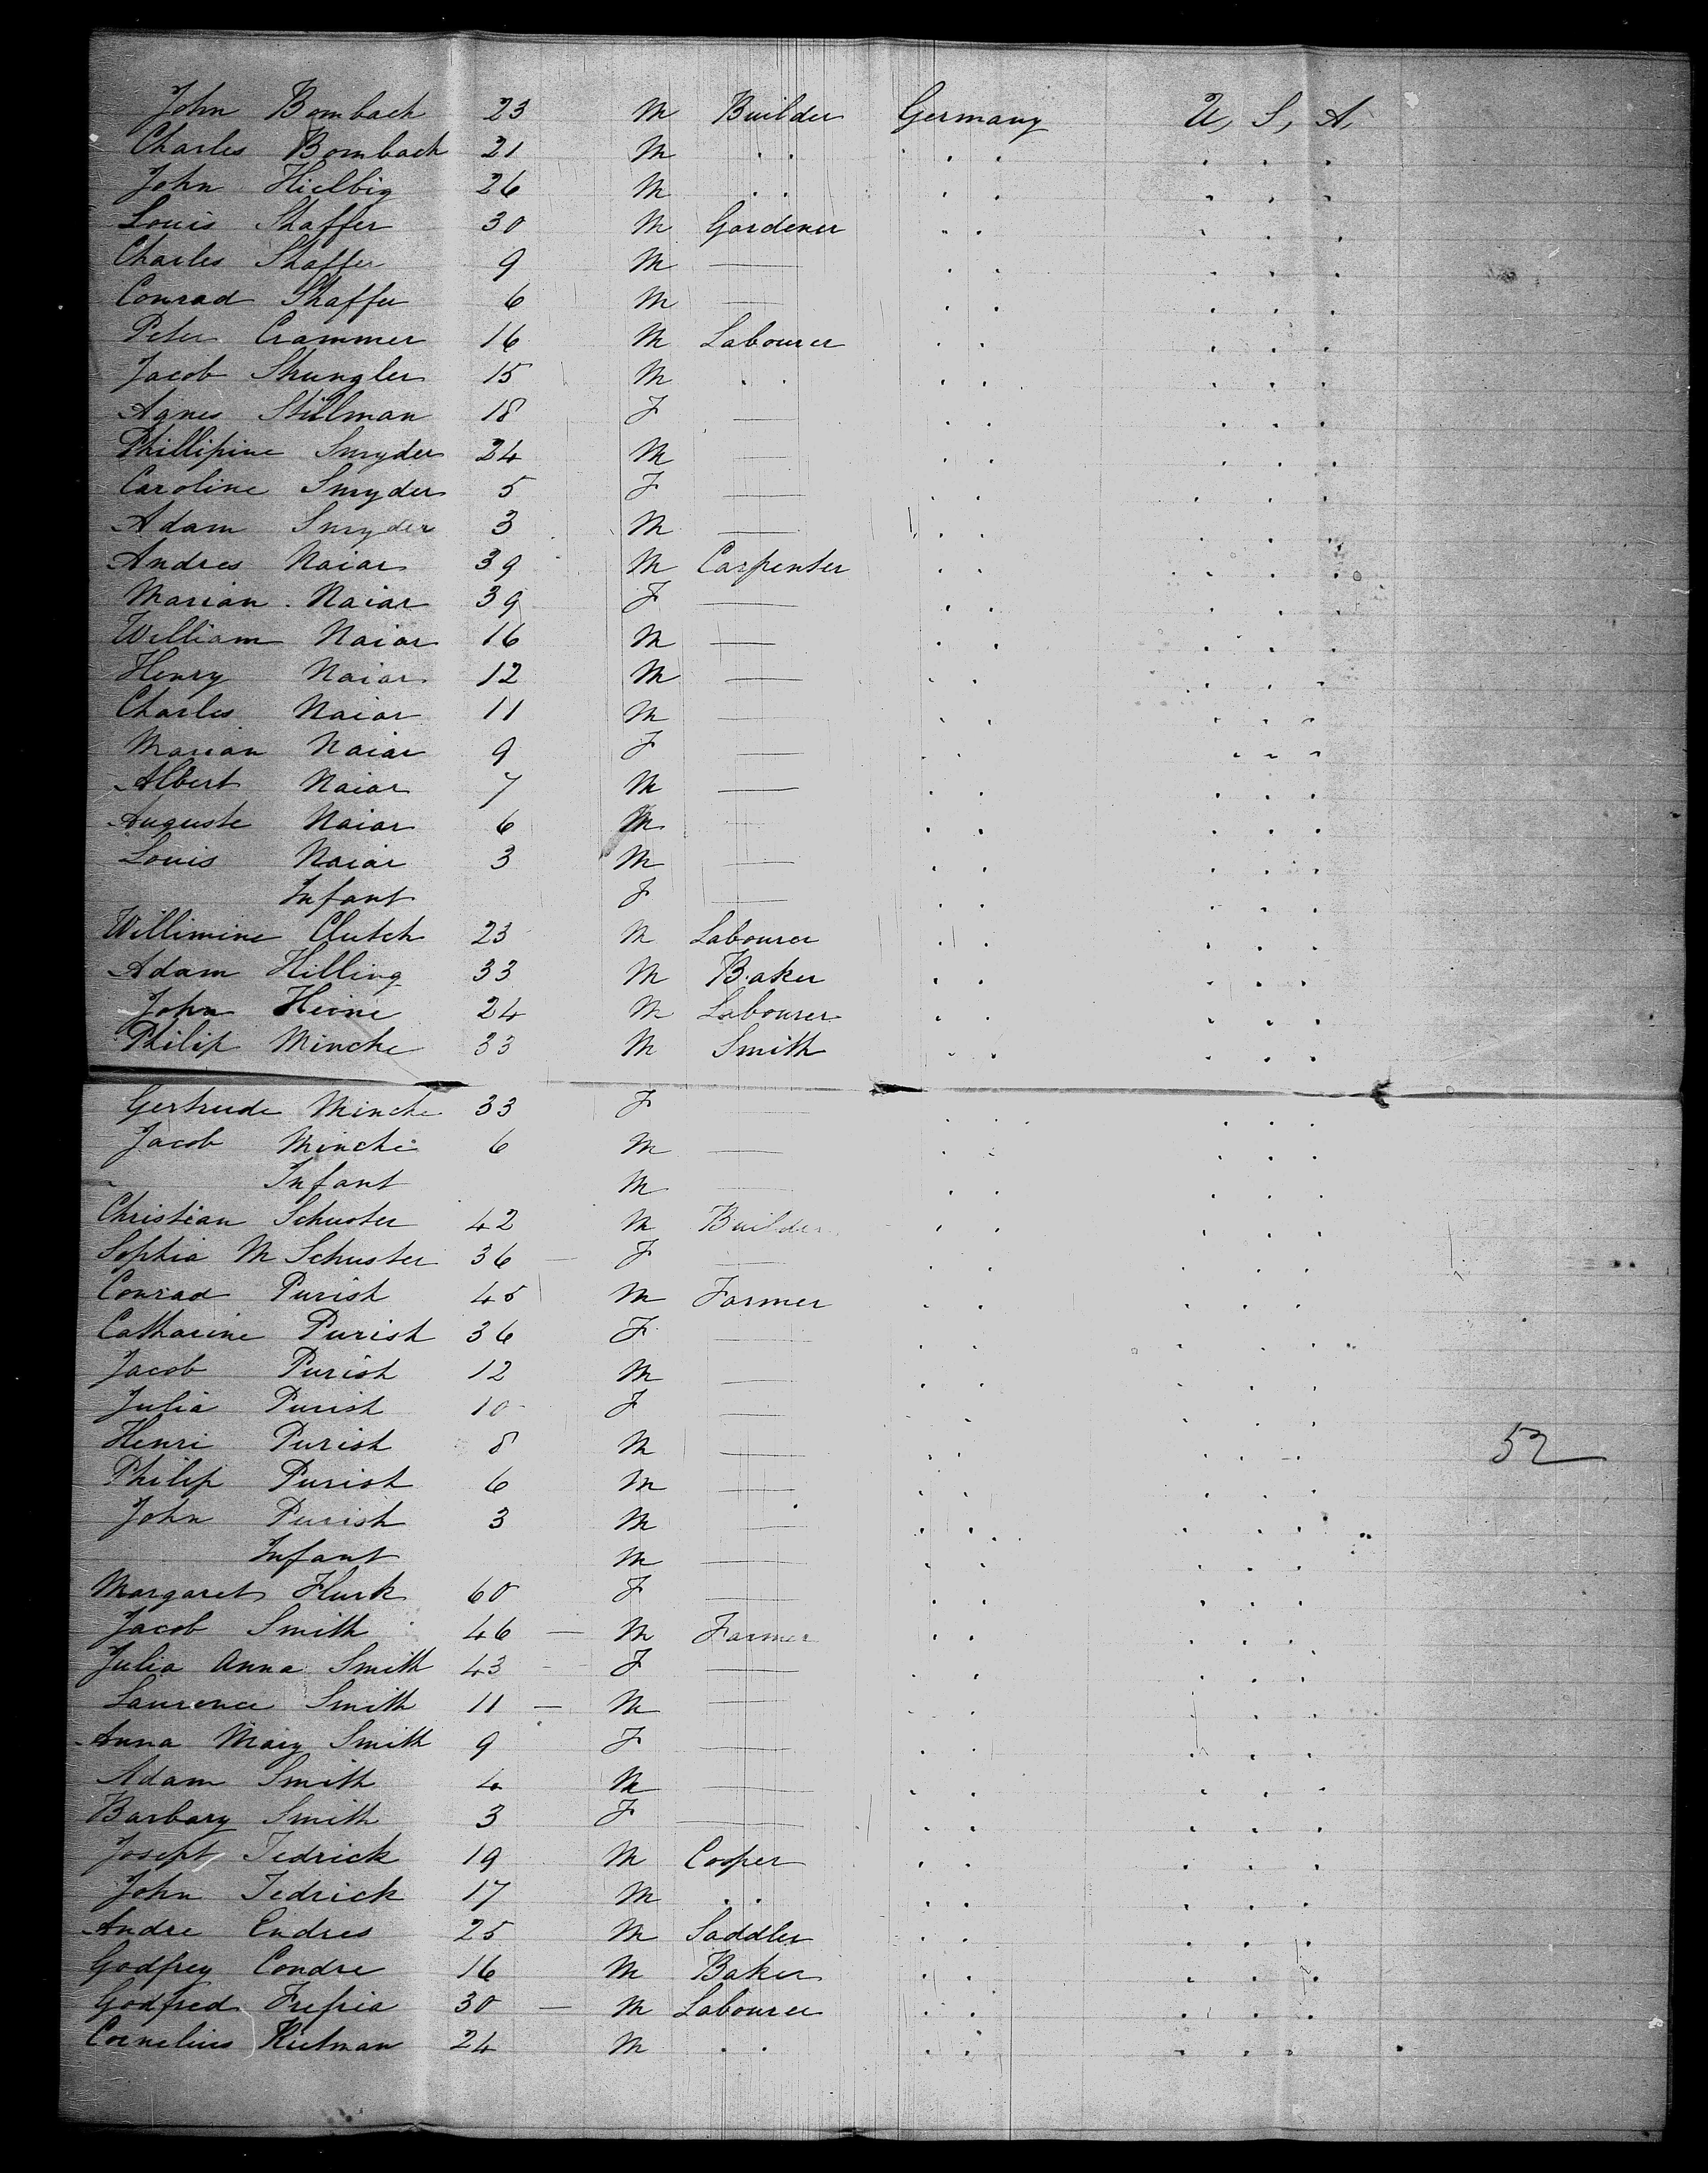 John Bombach 23 M Builder Germany U, S, A,
Charles Bombach 21 M . . . . . . .
John Hielbig 26 M . . . . . . .
Louis Shaffer 30 M Gardener . . . . .
Charles Shaffer 9 M — . . . . .
Conrad Shaffer 6 M — . . . . .
Peter Crammer 16 M Labourer . . . . .
Jacob Shungler 15 M . . . . . . .
Agnes Stillman 18 F — . . . . .
Phillipine Snyder 24 M — . . . . .
Caroline Snyder 5 F — . . . . .
Adam Snyder 3 M — . . . . .
Andres Naiar 39 M Carpenter . . . . .
Marian Naiar 39 F — . . . . .
William Naiar 16 M — . . . . .
Henry Naiar 12 M — . . . . .
Charles Naiar 11 M — . . . . .
Marian Naiar 9 F — . . . . .
Albert Naiar 7 M — . . . . .
Auguste Naiar 6 M — . . . . .
Louis Naiar 3 M — . . . . .
Infant F — . . . . .
Willimine Clutch 23 M Labourer . . . . .
Adam Hilling 33 M Baker . . . . .
John Heine 24 M Labourer . . . . .
Philip Minche 33 M Smith . . . . .
Gertrude Minche 33 F — . . . . .
Jacob Minche 6 M — . . . . .
Infant M — . . . . .
Christian Schuster 42 M Builder . . . . .
Sophia M Schuster 36 — F — . . . . .
Conrad Purish 45 M Farmer . . . . .
Catharine Purish 36 F — . . . . .
Jacob Purish 12 M — . . . . .
Julia Purish 10 F — . . . . .
Henri Purish 8 M — . . . . . 52
Philip Purish 6 M — . . . . .
John Purish 3 M — . . . . .
Infant M — . . . . .
Margaret Flurk 60 F — . . . . .
Jacob Smith 46 — M Farmer . . . . .
Julia Anna Smith 43 — F — . . . . .
Laurence Smith 11 — M — . . . . .
Anna Mary Smith 9 F — . . . . .
Adam Smith 4 M — . . . . .
Barbary Smith 3 F — . . . . .
Joseph Tedrick 19 M Cooper . . . . .
John Tedrick 17 M . . . . . . .
Andre Endres 25 M Saddler . . . . .
Godfrey Condre 16 M Baker . . . . .
Godfred 30 — M Labourer . . . . .
Cornelius 24 M . . . . . . .